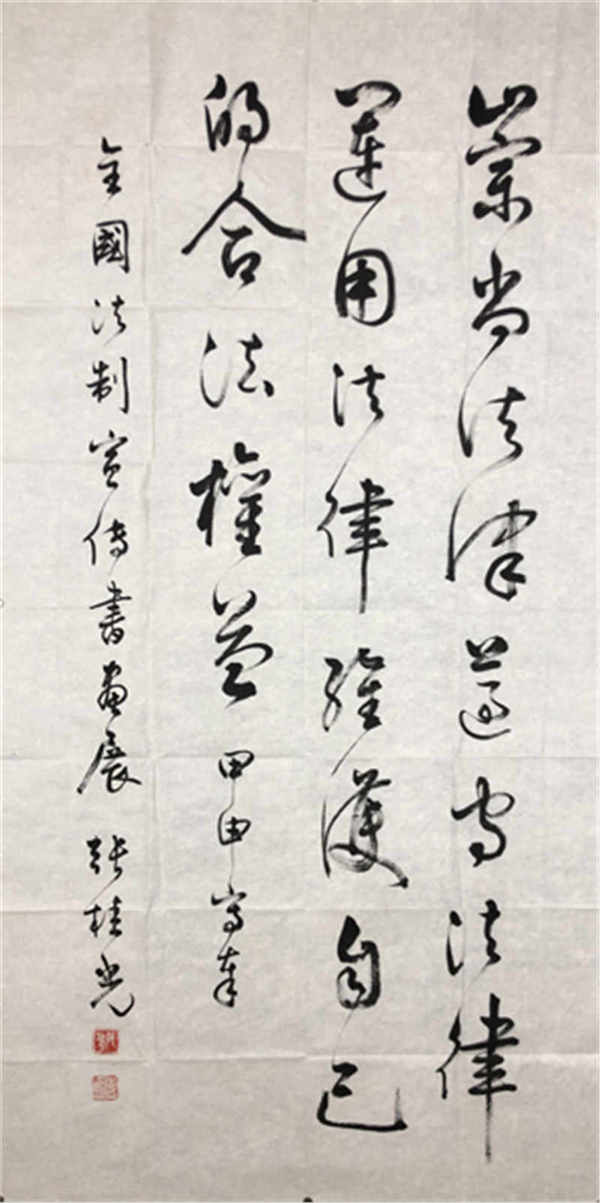 崇尚法律遵守法律
運用法律維護自己
的合法權益 甲申寫奉
全國法制宣传書画展 張桂光